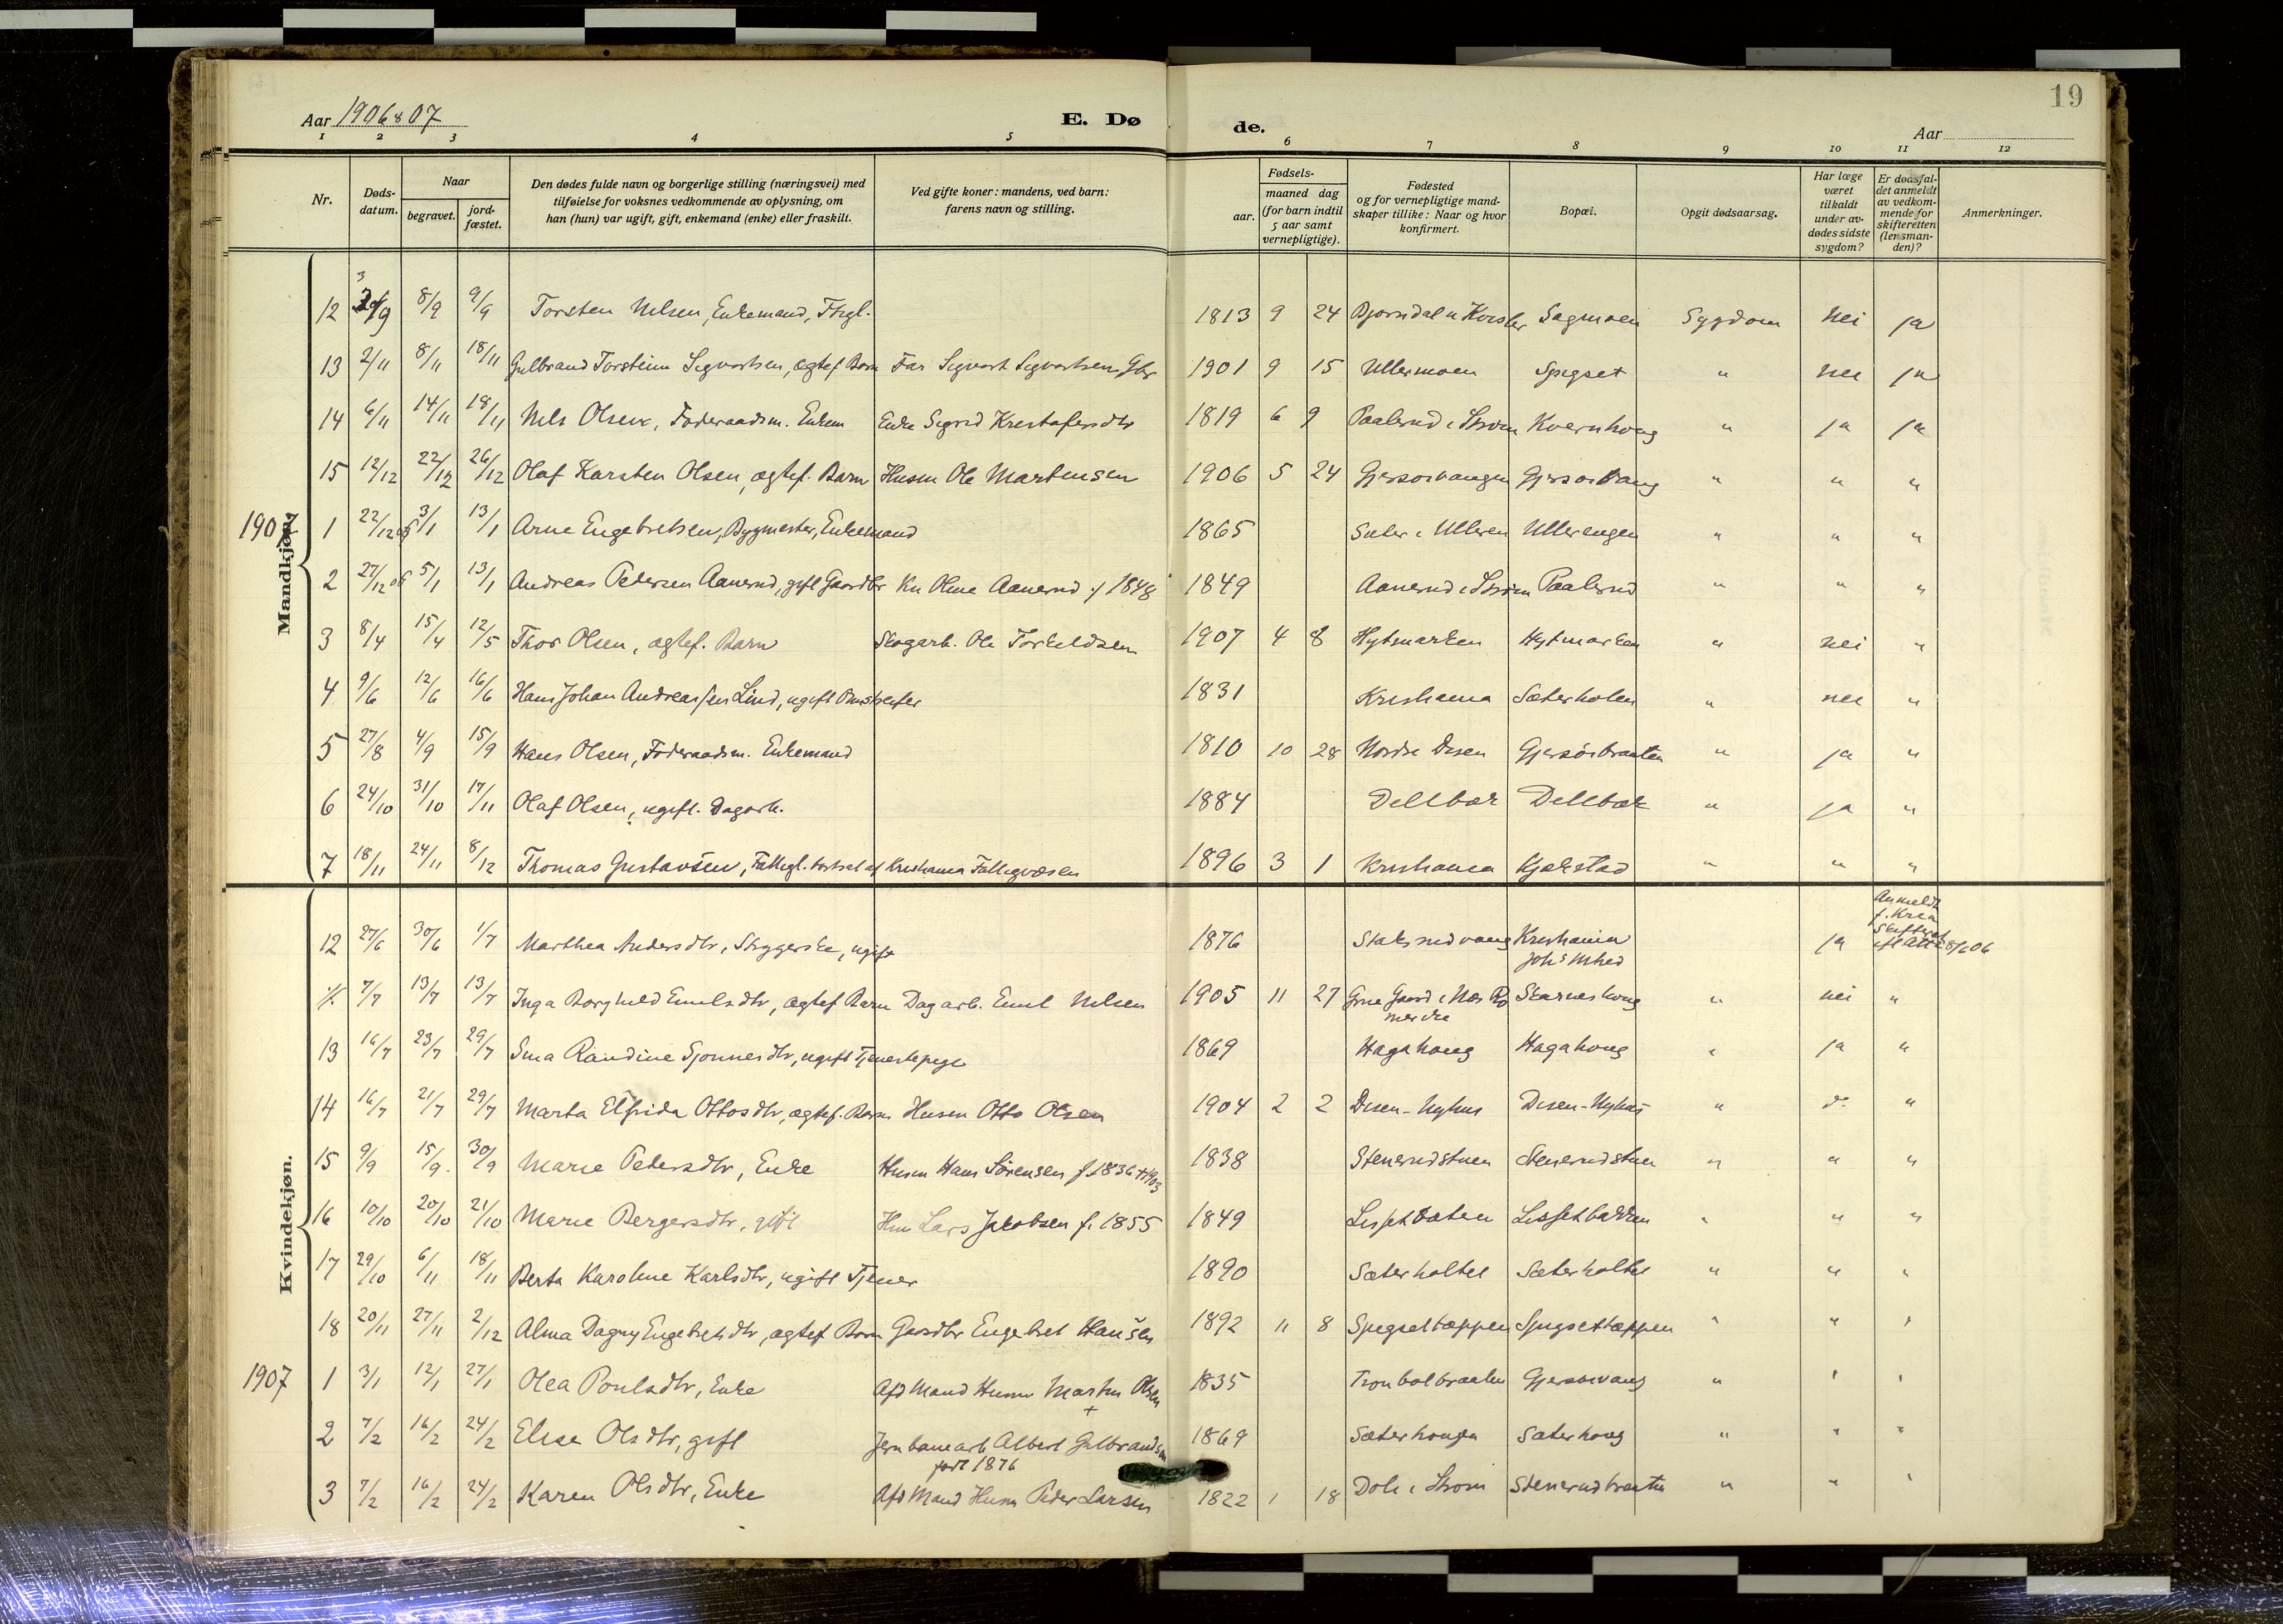 19
Aar 1906 & 07 E. Døde. Aar
1 2 3 4 5 6 7 8 9 10 11 12
Nr. Døds-datum. Naar begravet. jord-fæstet. Den dødes fulde navn og borgerlige stilling (næringsvei) med tilføielse for voksnes vedkommende av oplysning, om han (hun) var ugift, gift, enkemand (enke) eller fraskilt. Ved gifte koner: mandens, ved barn: farens navn og stilling. Fødsels- aar. maaned dag (for barn indtil 5 aar samt vernepligtige). Fødested og for vernepligtige mand-skaper tillike: Naar og hvor konfirmert. Bopæl. Opgit dødsaarsag. Har læge været tilkaldt under av-dødes sidste sygdom? Er dødsfal-det anmeldt av vedkom-mende for skifteretten (lensman-den)? Anmerkninger.
Mandkjøn.
12 3/9 8/9 9/9 Torsten Nilsen, Enkemand, Ftgl. 1813 9 24 Bjørndal Sagmoen Sygdom nei ja
13 2/11 8/11 18/11 Gulbrand Torsteinn Sigvartsen, ægtef Barn Far Sigvart Sigvartsen Gbr 1901 9 15 Ullermoen Spigset " nei ja
14 6/11 14/11 18/11 Nils Olsen, Føderaadsm. Enkem Enke Sigrid Kristofersdtr 1819 6 9 Paalerud i Strøm Kvernhoug " ja ja
15 12/12 22/12 26/12 Olaf Karsten Olsen, ægtef. Barn Husm Ole Martinsen 1906 5 24 Gjersøivangen Gjersøivang " " "
1907 1 22/12 06 3/1 13/1 Arne Engebretsen, Bygmester, Enkemand 1865 Sæter i Ulleren Ullerengen " " "
2 27/12 06 5/1 13/1 Andreas Pedersen Aanerud, gift Gaardbr Kn Oline Aanerud f 1848 1849 Aanerud i Strøm Paalerud " " "
3 8/4 15/4 12/5 Thor Olsen, ægtef. Barn Skogarb. Ole Torkeldsen 1907 4 8 Hytmarken Hytmarken " nei "
4 9/6 12/6 16/6 Hans Johan Andreassen Lind, ugift 1831 Kristiania Sæterholen " nei "
5 27/8 4/9 15/9 Hans Olsen, Føderaadsm. Enkemand 1810 10 28 Nordre Disen Gjersøibraaten " ja "
6 24/10 31/10 17/11 Olaf Olsen, ugift. Dagarb. 1884 Dellbæk Dellbæk " ja "
7 18/11 24/11 8/12 Thomas Gustavsen, Fattigl. bortsat af Kristiania Fattigvæsen 1896 3 1 Kristiania Kjølstad " " "
Kvindekjøn.
12 27/6 30/6 1/7 Marthea Andersdtr, Strygerske, ugift 1876 Kristiania ja Anmeldt f. Kr.a Skifteret
7/7 13/7 13/7 Inga Borghild Emilsdtr, ægtef Barn Dagarb. Emil Nilsen 1905 11 27 Skarneshoug " nei "
13 16/7 23/7 29/7 Randine Gjonnesdtr, ugift Tjenestepige 1869 Hagahoug Hagahoug " ja "
14 16/7 21/7 29/7 Marta Elfrida Ottosdtr, ægtef. Barn Husm Otto Olsen 1904 2 2 Disen-Nyhus Disen-Nyhus " do "
15 9/9 15/9. 30/9 Marie Pedersdtr, Enke Husm Hans Sørensen f. 1836 † 1903 1838 Stenerudstuen Stenerudstuen " " "
16 10/10 20/10 21/10 Marie Bergersdtr, gift Hm Lars Jakobsen f. 1855 1849 Lissetbakken " " "
17 29/10 6/11 18/11 Berta Karoline Karlsdtr, ugift Tjener 1890 Sæterholtet Sæterholtet " " "
18 20/11 27/11 2/12 Alma Dagny Engebretsdtr, ægtef Barn Gaardbr Engebret Hansen 1892 11 8 Spigsettoppen Spigsettoppen " " "
1907 1 3/1 12/1 27/1 Olea Poulsdtr, Enke Afd Mand Husm Martin Olsen 1835 Tronbølbraaten Gjersøivang " " "
2 7/2 16/2 24/2 Elise Olsdtr, gift Jernbanearb Albert Gulbrandsen født 1876 1869 Sæterhougen Sæterhoug " " "
3 7/2 16/2 24/2 Karen Olsdtr, Enke Afd Mand Husm Peder Larsen 1822 1 18 Doli i Strøm Stenerudbraaten " " "